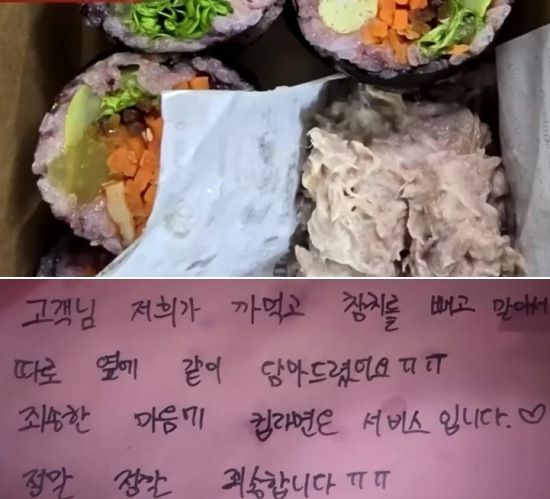 고객님 저희가 까먹고 참치를 빼고 말아서
따로 옆에 같이 담아드렸어요 ㅠㅠ
죄송한 마음에 컵라면은 서비스 입니다.♡
정말 정말 죄송합니다 ㅠㅠ